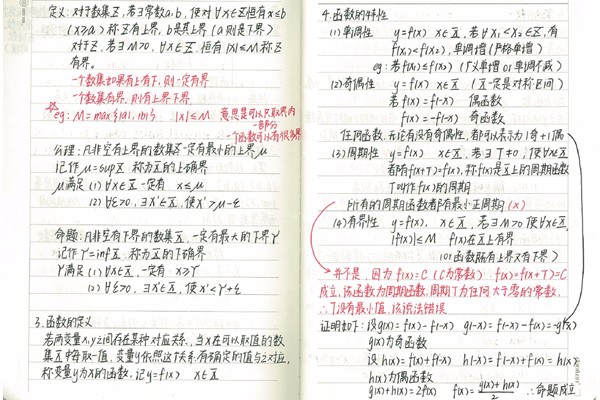 定义:对于数集X,若∃常数a,b,使对∀x∈X恒有x≤b
(x≥a) 称X有上界,b是其上界 (a则是下界)
对于X,若∃M>0,∀x∈X,恒有|x|≤M称X
有界。
一个数集如果有上有下,则一定有界
一个数集有界,则有上界下界
eg: M=max{|a|,|b|} |x|≤M 意思是可以只取界内
一部分
一个函数可以有很多界
公理:凡非空有上界的数集一定有最小的上界μ
记作μ=supX 称为X的上确界
μ满足 (1) ∀x∈X一定有 x≤μ
(2) ∀ε>0, ∃x'∈X, 使x'>μ-ε
命题:凡非空有下界的数集X,一定有最大的下界γ
记作γ=infX 称为X的下确界
γ满足 (1) ∀x∈X, 一定有 x≥γ
(2) ∀ε>0, ∃x'∈X, 使x'<γ+ε
3.函数的定义
若两变量x,y之间存在某种对应关系,当x在可以取值的数
集X中每取一值,变量y依照这个关系有确定的值与之对应,
称变量y为x的函数,记y=f(x) x∈X
4.函数的特性
(1)单调性 y=f(x) x∈X,若∀x₁<x₂∈X,有
f(x₁)<f(x₂),单调增(严格单增)
eg:若f(x₁)≤f(x₂) (广义单增 or 单调不减)
(2)奇偶性 y=f(x) x∈X (X一定是对称区间)
若f(x)=f(-x) 偶函数
f(x)=-f(-x) 奇函数
任何函数,不论有没有奇偶性,都可以表示为1奇+1偶
(3)周期性 y=f(x) x∈X,若∃T≠0,使∀x∈X
都有f(x+T)=f(x),称f(x)是X上的周期函数
T叫作f(x)的周期
所有的周期函数都有最小正周期(×)
(4)有界性 y=f(x), x∈X,若∃M>0使∀x∈X,
|f(x)|≤M f(x)在X上有界
(or函数既有上界又有下界)
并不是,因为f(x)=C (C为常数) f(x)=f(x+T)=C
成立,该函数为周期函数,周期T为任何大于零的常数,
∴T没有最小值,该说法错误
证明如下:设g(x)=f(x)-f(-x) g(-x)=f(-x)-f(x)=-g(x)
g(x)为奇函数
设h(x)=f(x)+f(-x) h(-x)=f(-x)+f(x)=h(x)
h(x)为偶函数
g(x)+h(x)=2f(x) f(x)=g(x)+h(x)/2 ∴命题成立